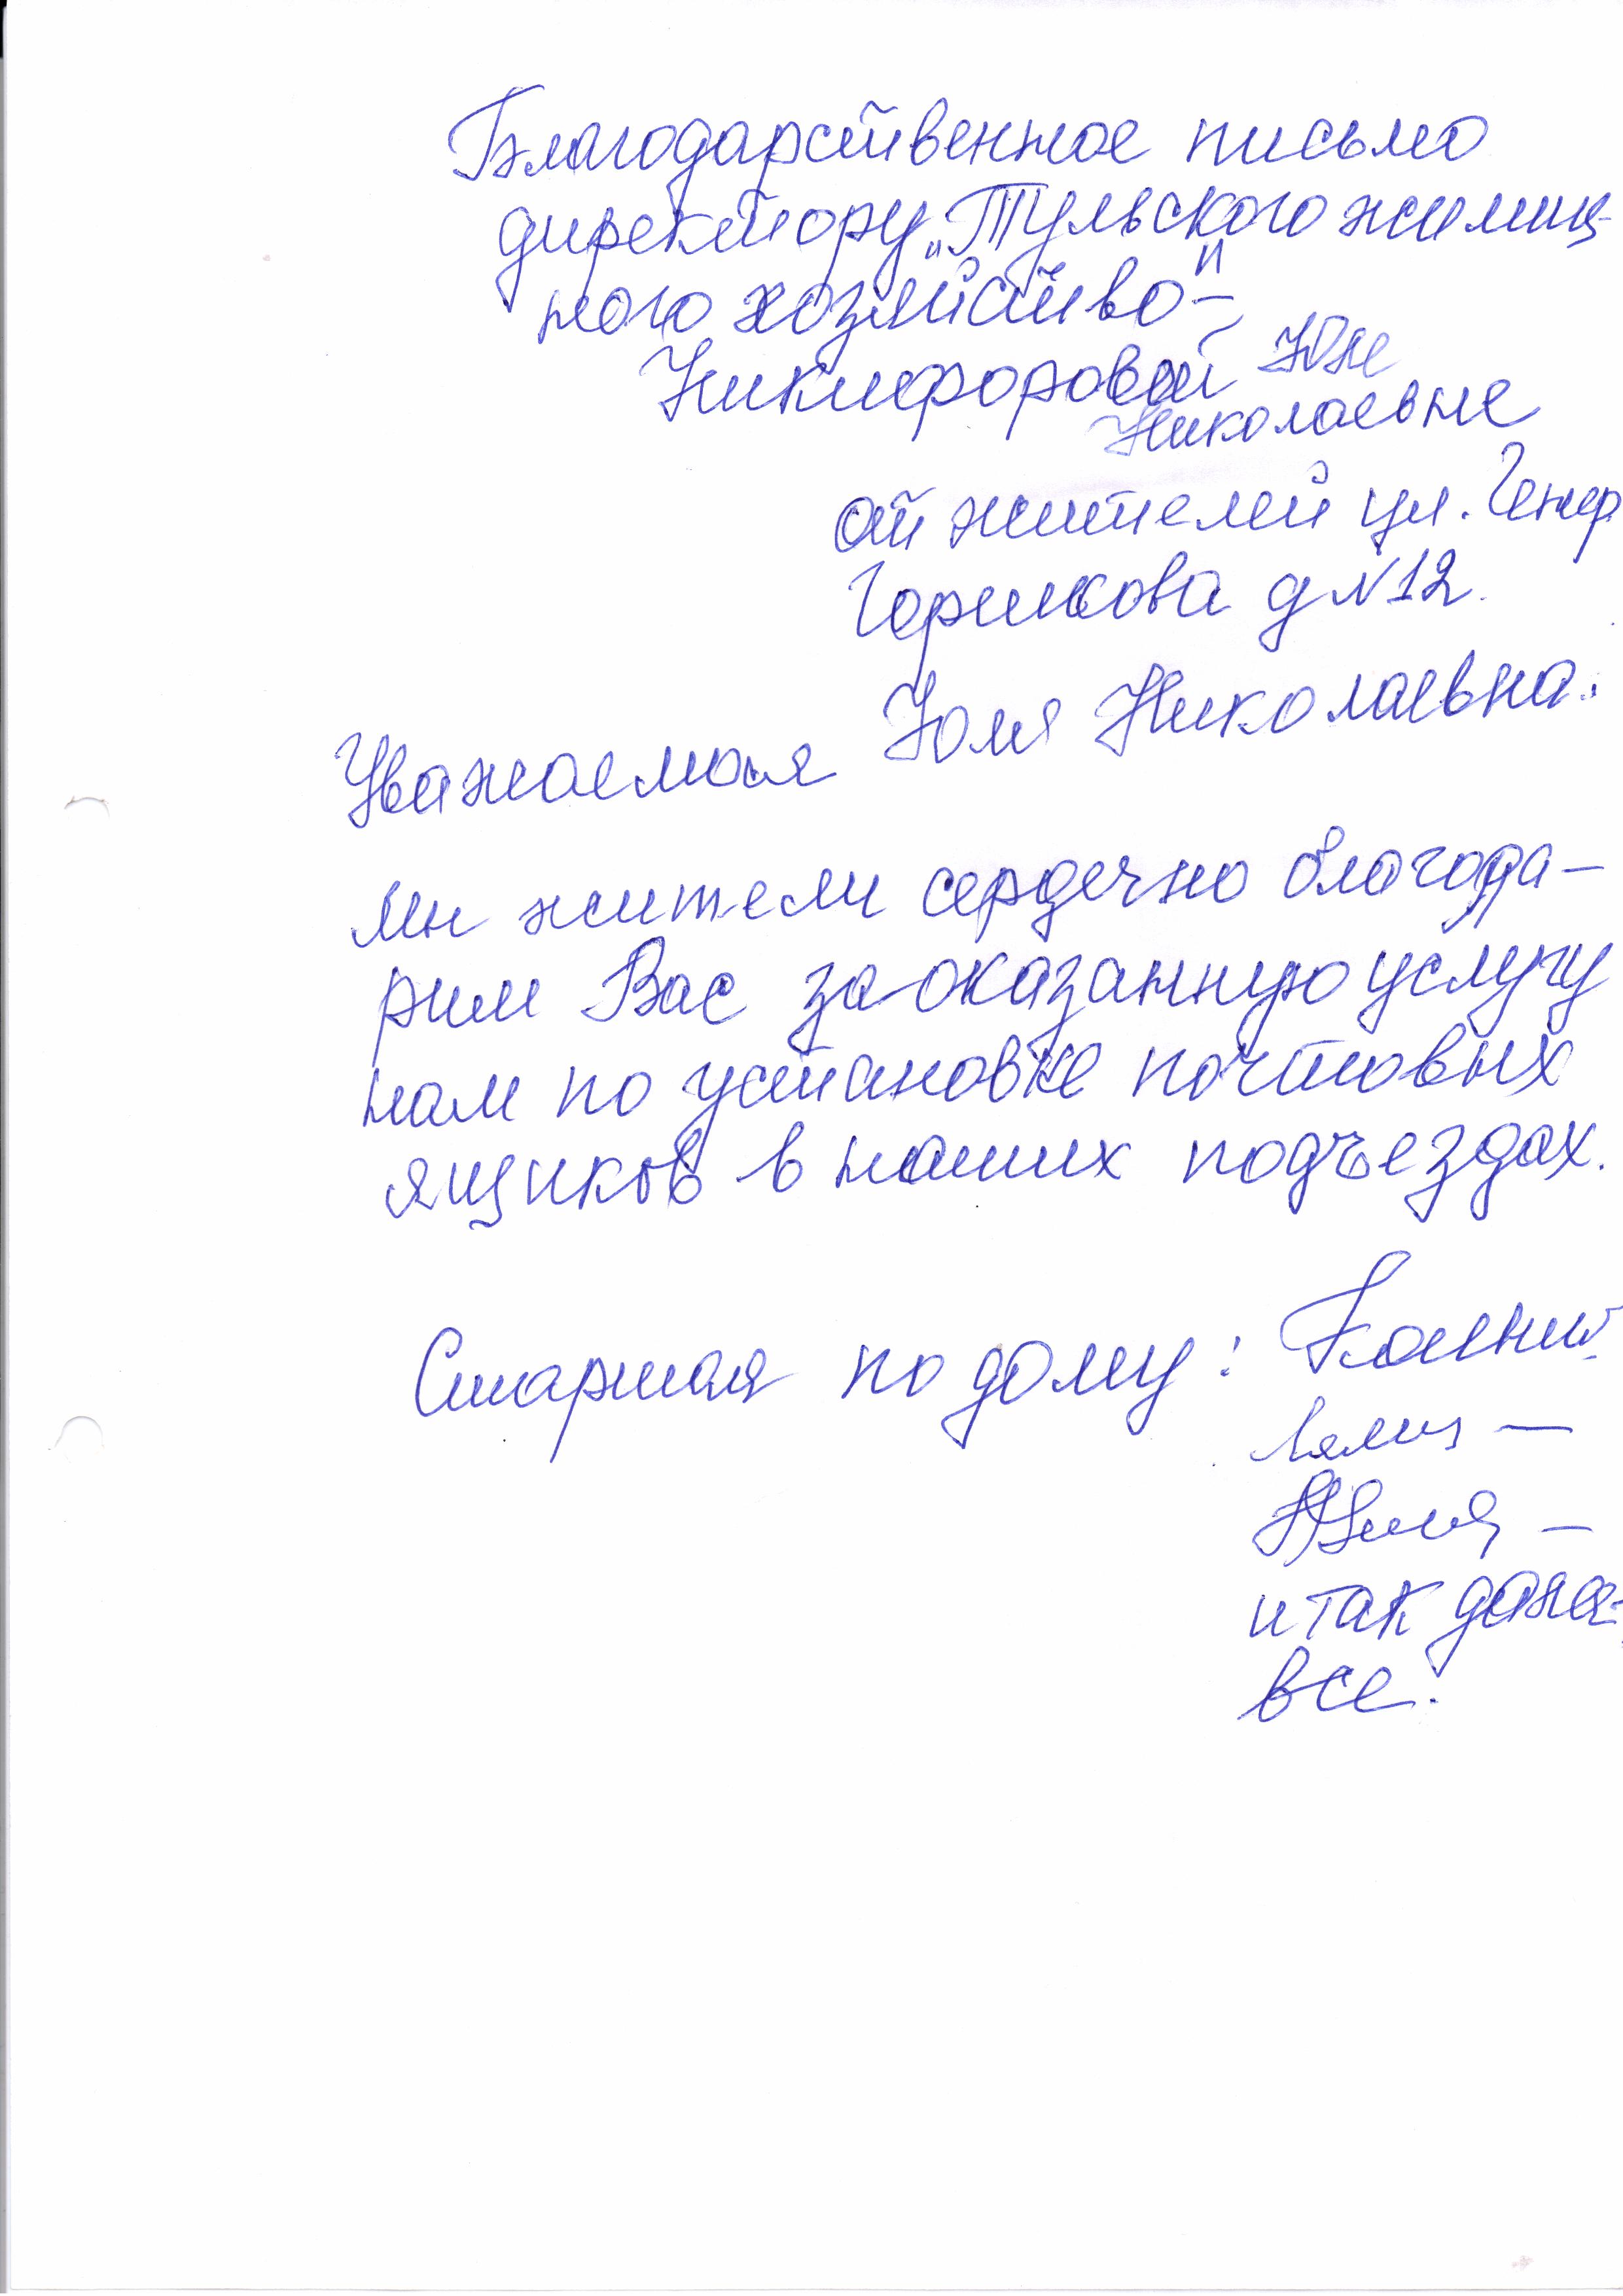 Благодарственное письмо
директору „Тульского жилищ-
ного хозяйство" –
Никифоровой Юле
Николаевне
от жителей ул. Генер
Горшкова д №12.
Уважаемая Юлия Николаевна.
мы жители сердечно благода-
рим Вас за оказанную услугу
нам по установке почтовых
ящиков в наших подъездах.
Старшая по дому:
и так далее
все.